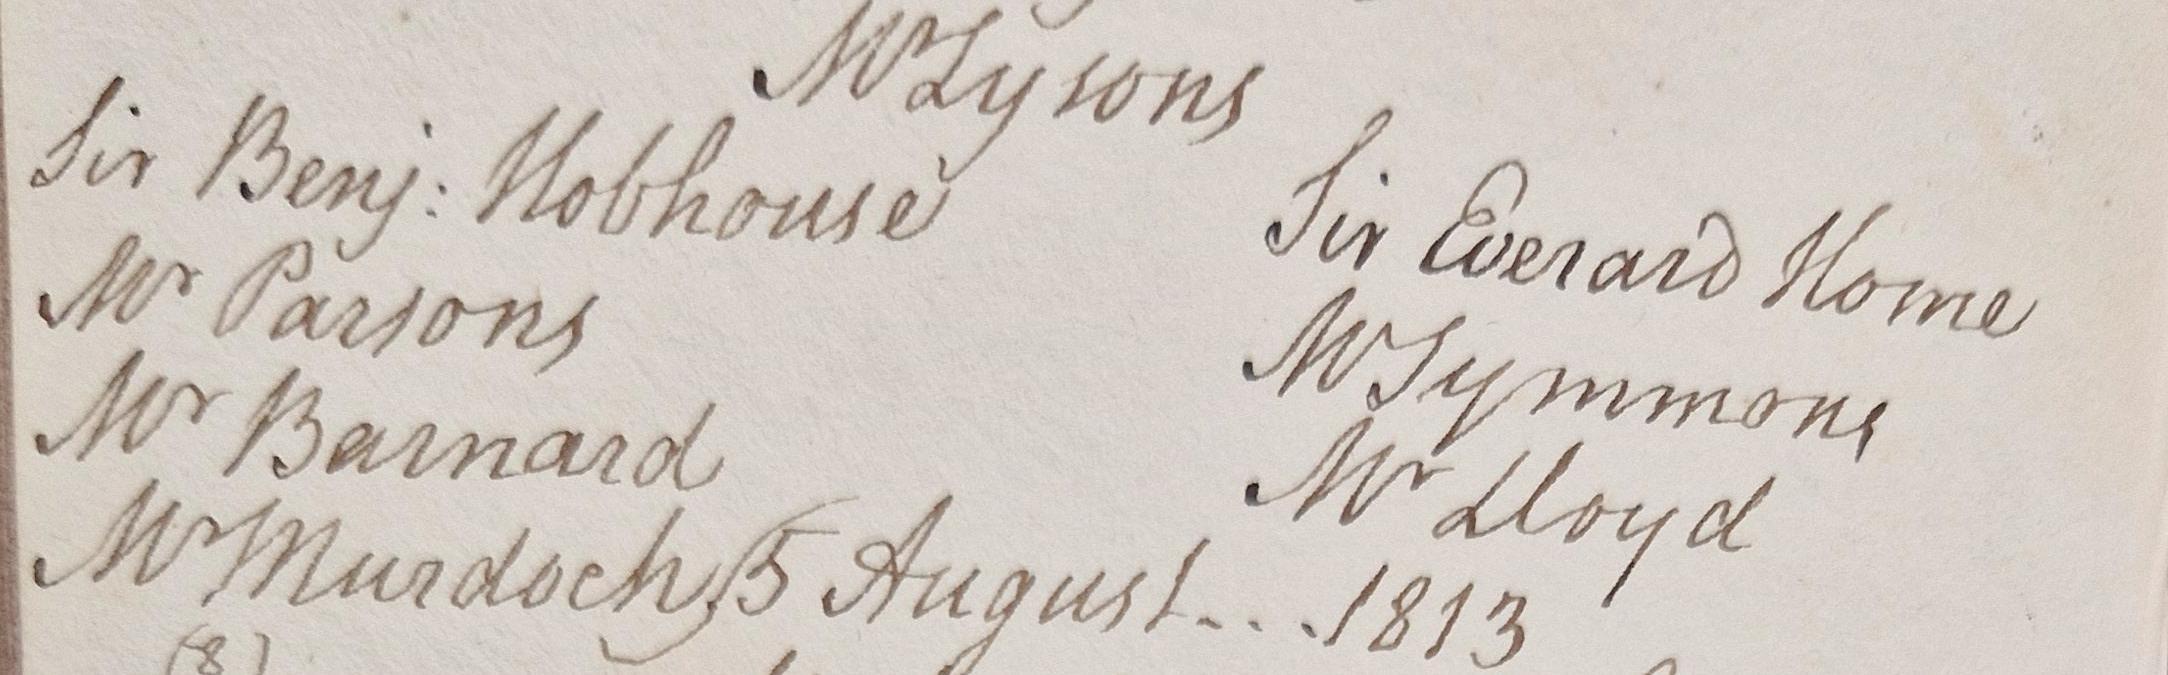 Mr Lysons
Sir Benj: Hobhouse
Sir Everard Home
Mr Parsons
Mr Symmons
Mr Barnard
Mr Lloyd
Mr Murdoch, 15 August... 1813
(8)